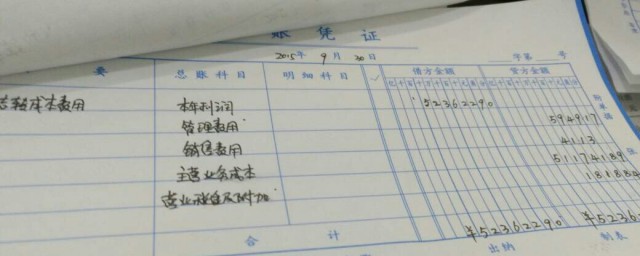 账 凭 证
2015年 9月30日 字第 号
要 总账科目 明细科目 √ 借方金额 贷方金额
成本费用 本年利润 52362290
管理费用 594917
销售费用 4113
主营业务成本 51174189
营业税金及附加 181884
合 计 ¥52362290 ¥5236
出纳 制表